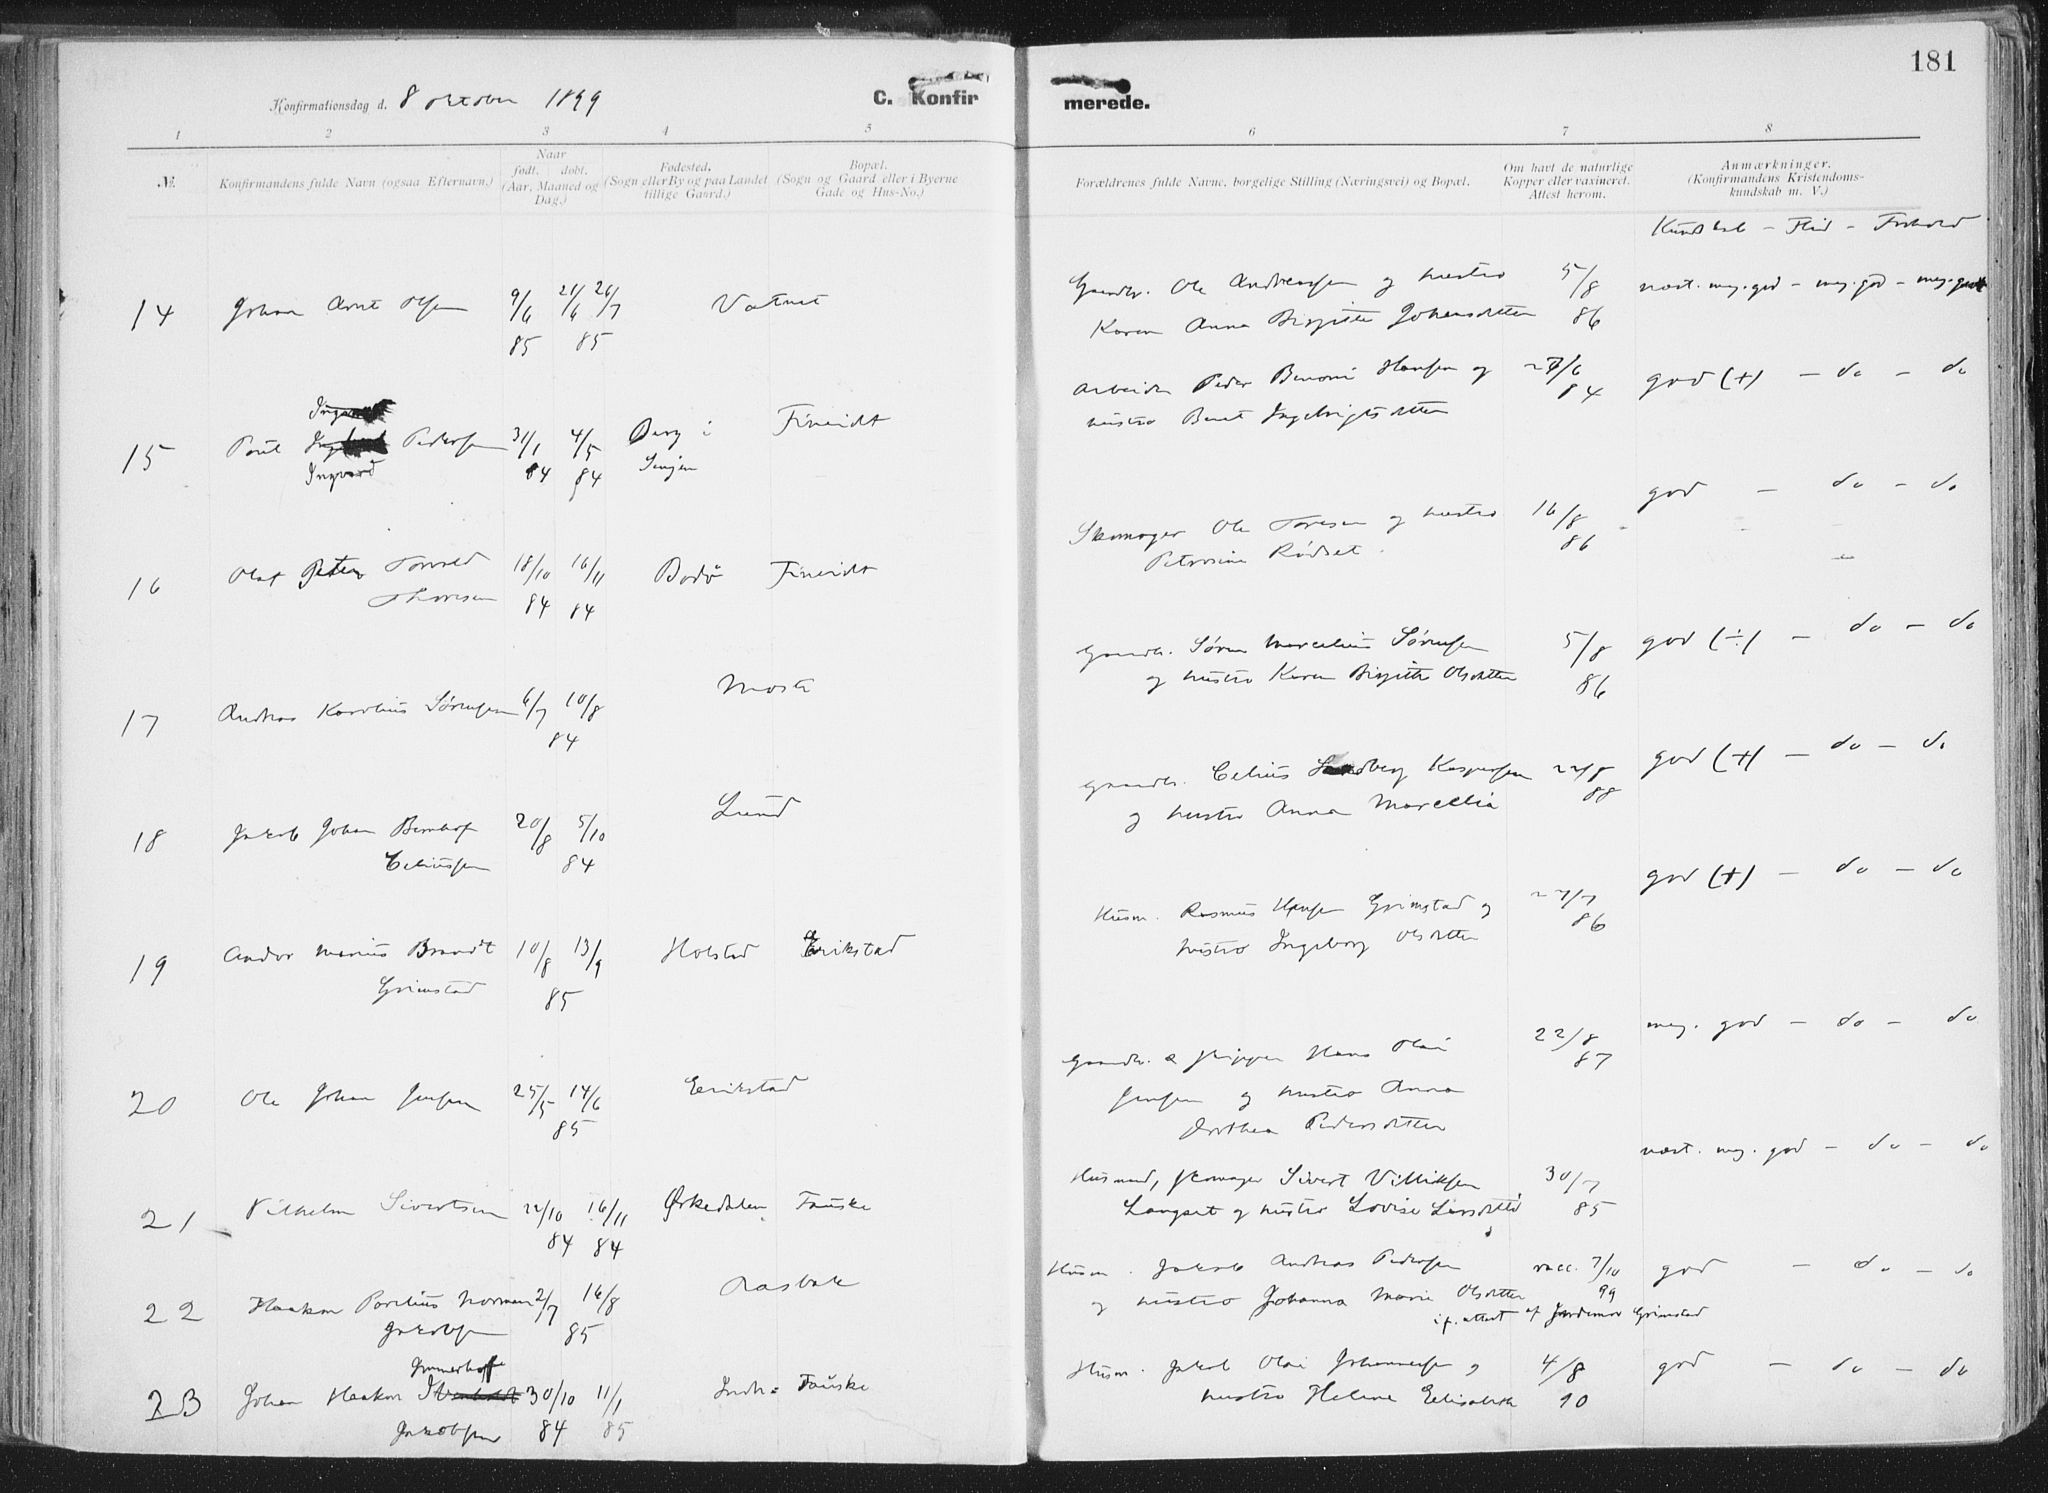 181
Konfirmationsdag d. 8 oktober 1899
C. Konfirmerede.
1 2 3 4 5 6 7 8
№.
Konfirmandens fulde Navn (ogsaa Efternavn.)
Naar
født. døbt.
(Aar, Maaned og
Dag.)
Fødested.
(Sogn eller By og paa Landet
tillige Gaard.)
Bopæl.
(Sogn og Gaard eller i Byerne
Gade og Hus-No.)
Forældrenes fulde Navne, borgelige Stilling (Næringsvei) og Bopæl.
Om havt de naturlige
Kopper eller vaxineret.
Attest herom.
Anmærkninger.
(Konfirmandens Kristendoms-
kundskab m. V.)
Kundskab – Flid – Forhold
14 Johan Arnt Olsen 9/6 85 21/6 26/7 85 Vatnet
Gaardbr. Ole Andreassen og hustro
Karen Anna Birgitte Johansdatter 5/8 86
næst. meg. god – meg. god – meg. godt
15 Poul Ingvard Pedersen 31/1 84 4/5 84 Berg i Senjen Fineidt
Arbeider Peder Benoni Hansen og
hustro Beret Ingebrigtsdatter 27/6 84
god (+) – do – do
16 Olaf Peter Torvald
Thoresen 18/10 84 16/11 84 Bodø Fineidt
Skomager Ole Toresen og hustro
Petrosine Rødset. 16/8 86
god – do – do
17 Andreas Karolius Sørensen 6/7 10/8 84 Mosti
Gaardbr. Søren Marcelius Sørensen
og hustro Karen Birgitte Olsdatter 5/8 86
god (÷) – do – do
18 Jakob Johan Bernhof
Celiussen 20/8 5/10 84 Lund
Gaardbr. Celius Kaspersen
og hustro Anna Marcellia 88
god (+) – do – do
19 Andor Marius Brandt
Grimstad 10/8 13/9 85 Holstad Erikstad
Husm. Rasmus Hansen Grimstad og
hustro Ingeborg Olsdatter 27/7 86
god (+) – do – do
20 Ole Johan Jensen 25/5 14/6 85 Erikstad
Gaardbr. & skipper Hans Olai
Jensen og hustro Anna
Dorthea Pedersdatter 22/8 87
meg. god – do – do
21 Vilhelm Sivertsen 22/10 84 16/11 84 Ørkedalen Fauske
Husmand, skomager Sivert Villiksen
Langset og hustro Lovise Larsdatter 30/7 85
næst. meg. god – do – do
22 Haakon Parelius Norman
Jakobsen 2/7 16/8 85 Lasbak
Husm. Jakob Andreas Pedersen
og hustro Johanna Marie Olsdatter vacc. 7/10 99
if. attest af Jordemor Grimstad
god – do – do
23 Johan Haakon
Jakobsen 30/10 84 11/1 85 Indr. Fauske
Husm. Jakob Olai Johannessen og
hustro Helene Elisabeth 4/8 90
god – do – do